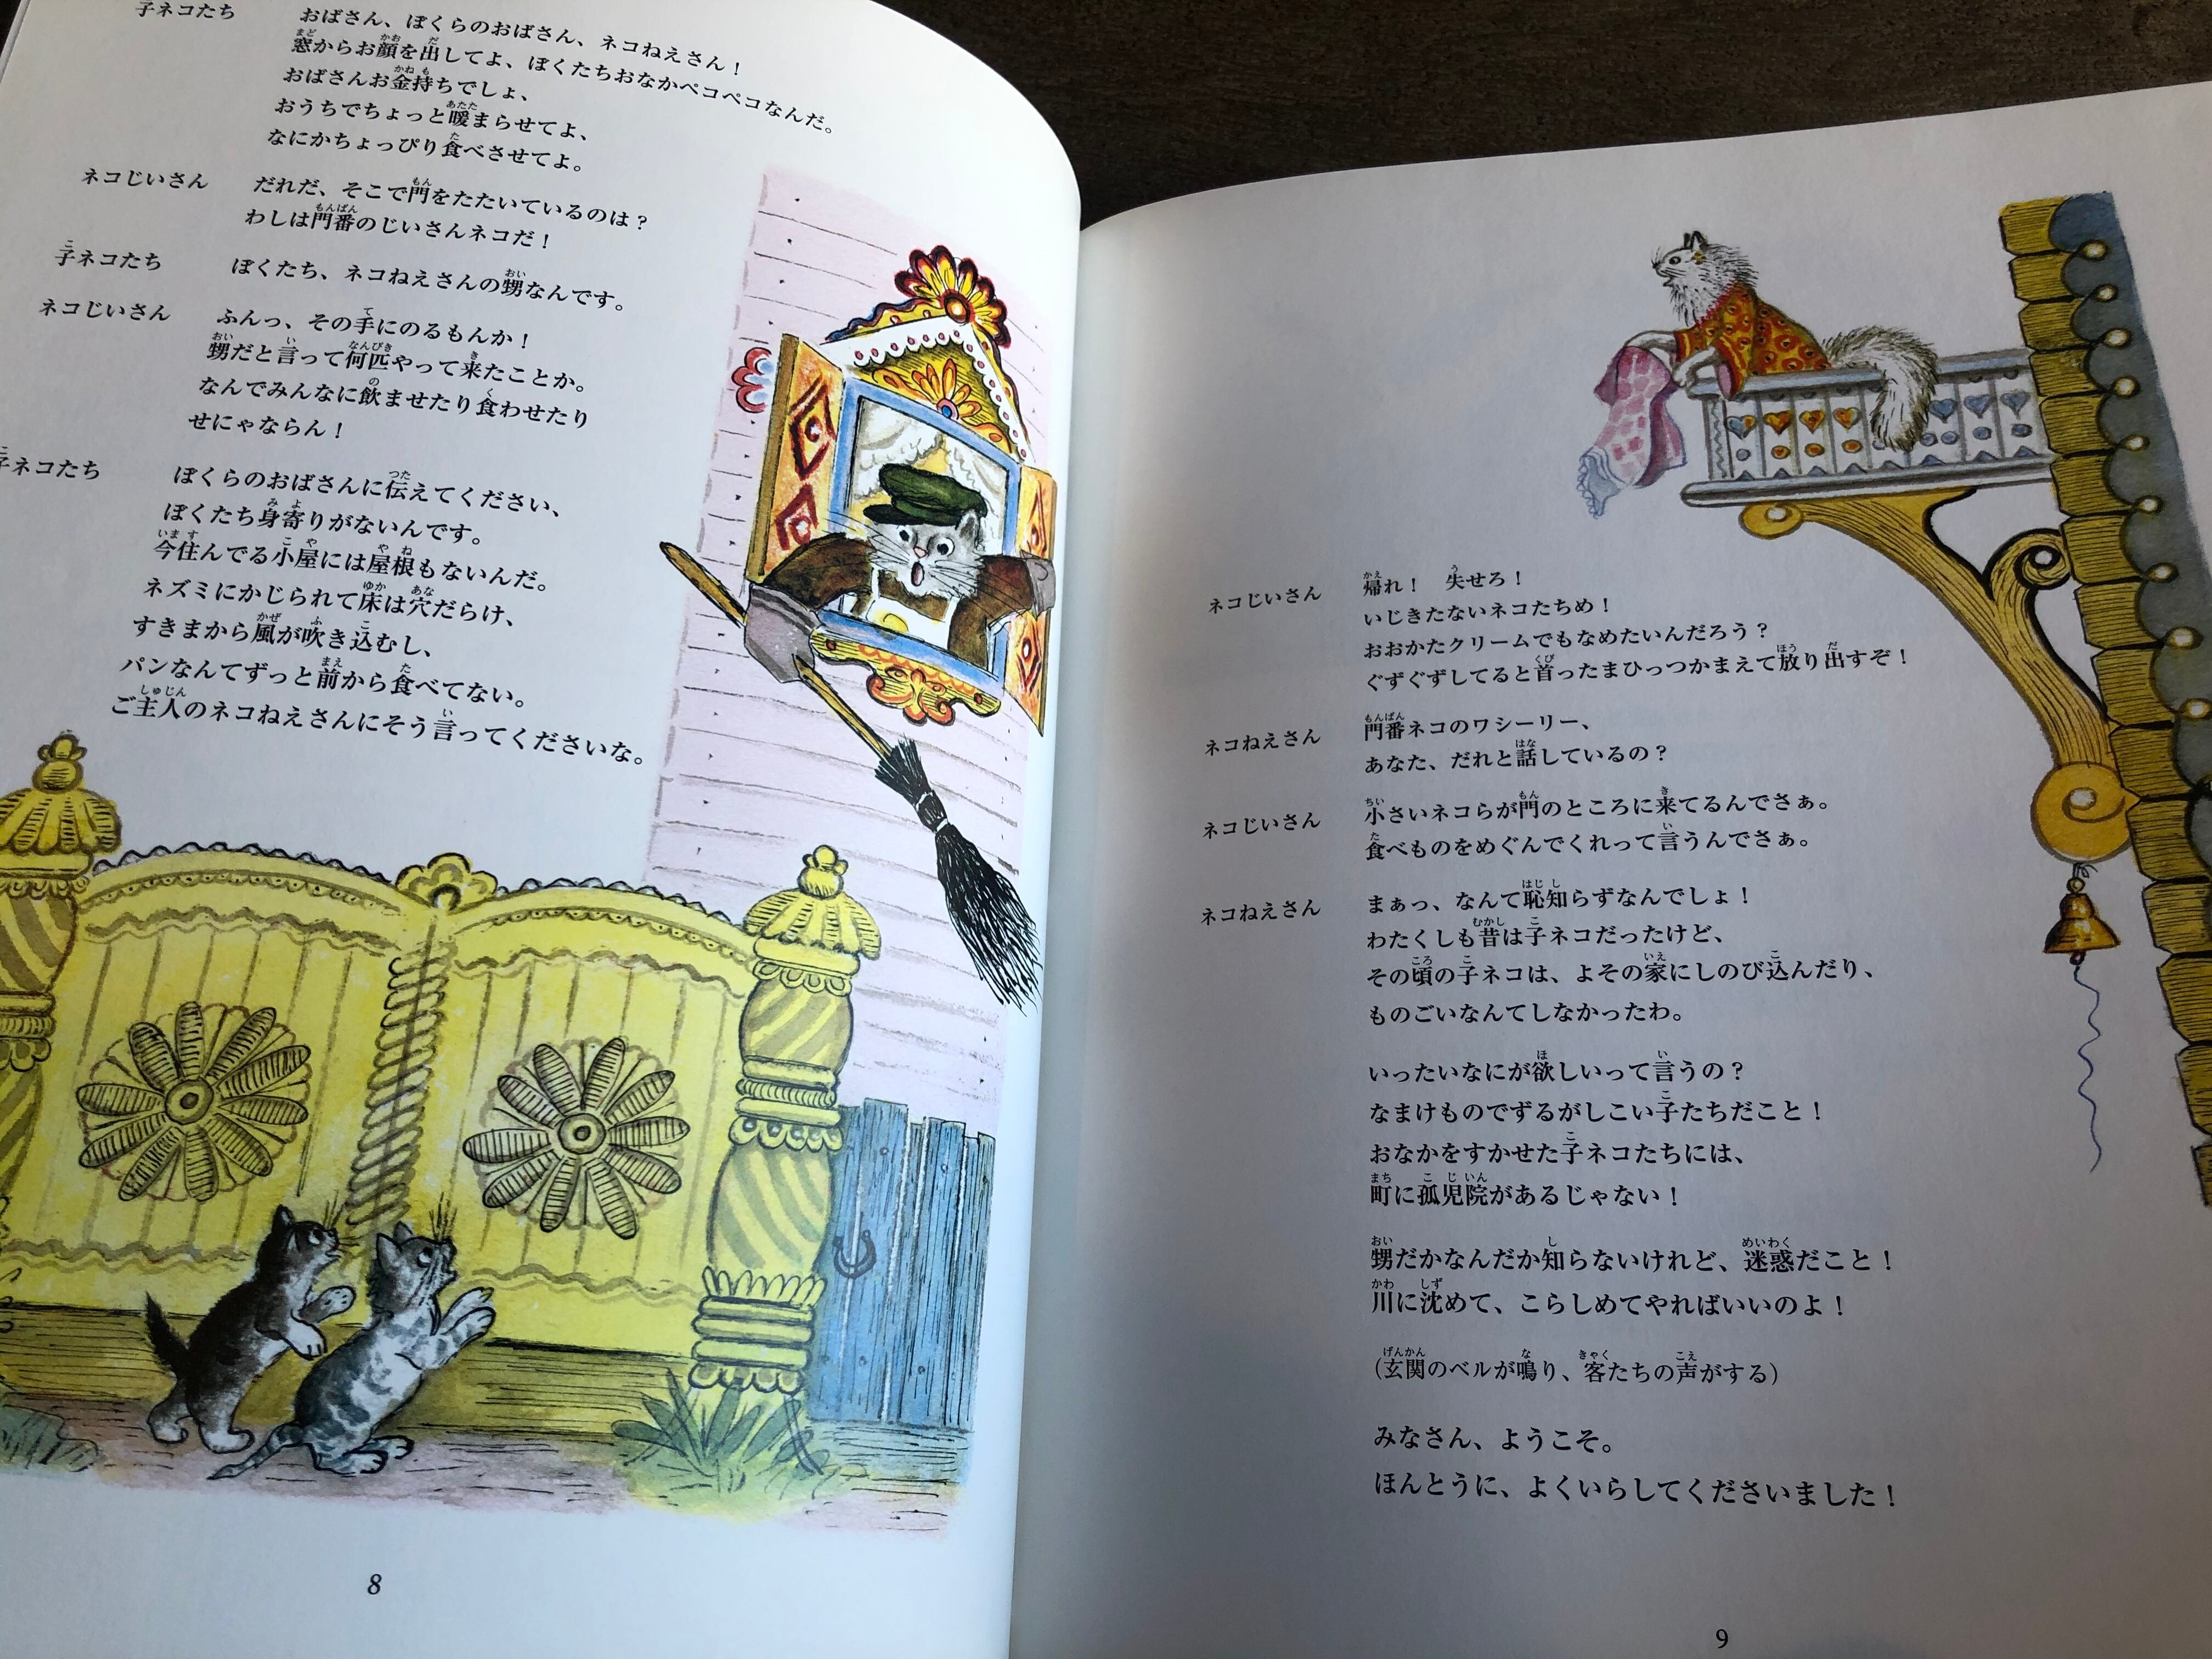 子ネコたち　おばさん、ぼくらのおばさん、ネコねえさん！
窓からお顔を出してよ、ぼくたちおなかペコペコなんだ。
おばさんお金持ちでしょ、
おうちでちょっと暖まらせてよ、
なにかちょっぴり食べさせてよ。
ネコじいさん　だれだ、そこで門をたたいているのは？
わしは門番のじいさんネコだ！
子ネコたち　ぼくたち、ネコねえさんの甥なんです。
ネコじいさん　ふんっ、その手にのるもんか！
甥だと言って何匹やって来たことか。
なんでみんなに飲ませたり食わせたり
せにゃならん！
子ネコたち　ぼくらのおばさんに伝えてください、
ぼくたち身寄りがないんです。
今住んでる小屋には屋根もないんだ。
ネズミにかじられて床は穴だらけ、
すきまから風が吹き込むし、
パンなんてずっと前から食べてない。
ご主人のネコねえさんにそう言ってくださいな。
8
ネコじいさん　帰れ！　失せろ！
いじきたないネコたちめ！
おおかたクリームでもなめたいんだろう？
ぐずぐずしてると首ったまひっつかまえて放り出すぞ！
ネコねえさん　門番ネコのワシーリー、
あなた、だれと話しているの？
ネコじいさん　小さいネコらが門のところに来てるんでさぁ。
食べものをめぐんでくれって言うんでさぁ。
ネコねえさん　まぁっ、なんて恥知らずなんでしょ！
わたくしも昔は子ネコだったけど、
その頃の子ネコは、よその家にしのび込んだり、
ものごいなんてしなかったわ。
いったいなにが欲しいって言うの？
なまけものでずるがしこい子たちだこと！
おなかをすかせた子ネコたちには、
町に孤児院があるじゃない！
甥だかなんだか知らないけれど、迷惑だこと！
川に沈めて、こらしめてやればいいのよ！
（玄関のベルが鳴り、客たちの声がする）
みなさん、ようこそ。
ほんとうに、よくいらしてくださいました！
9